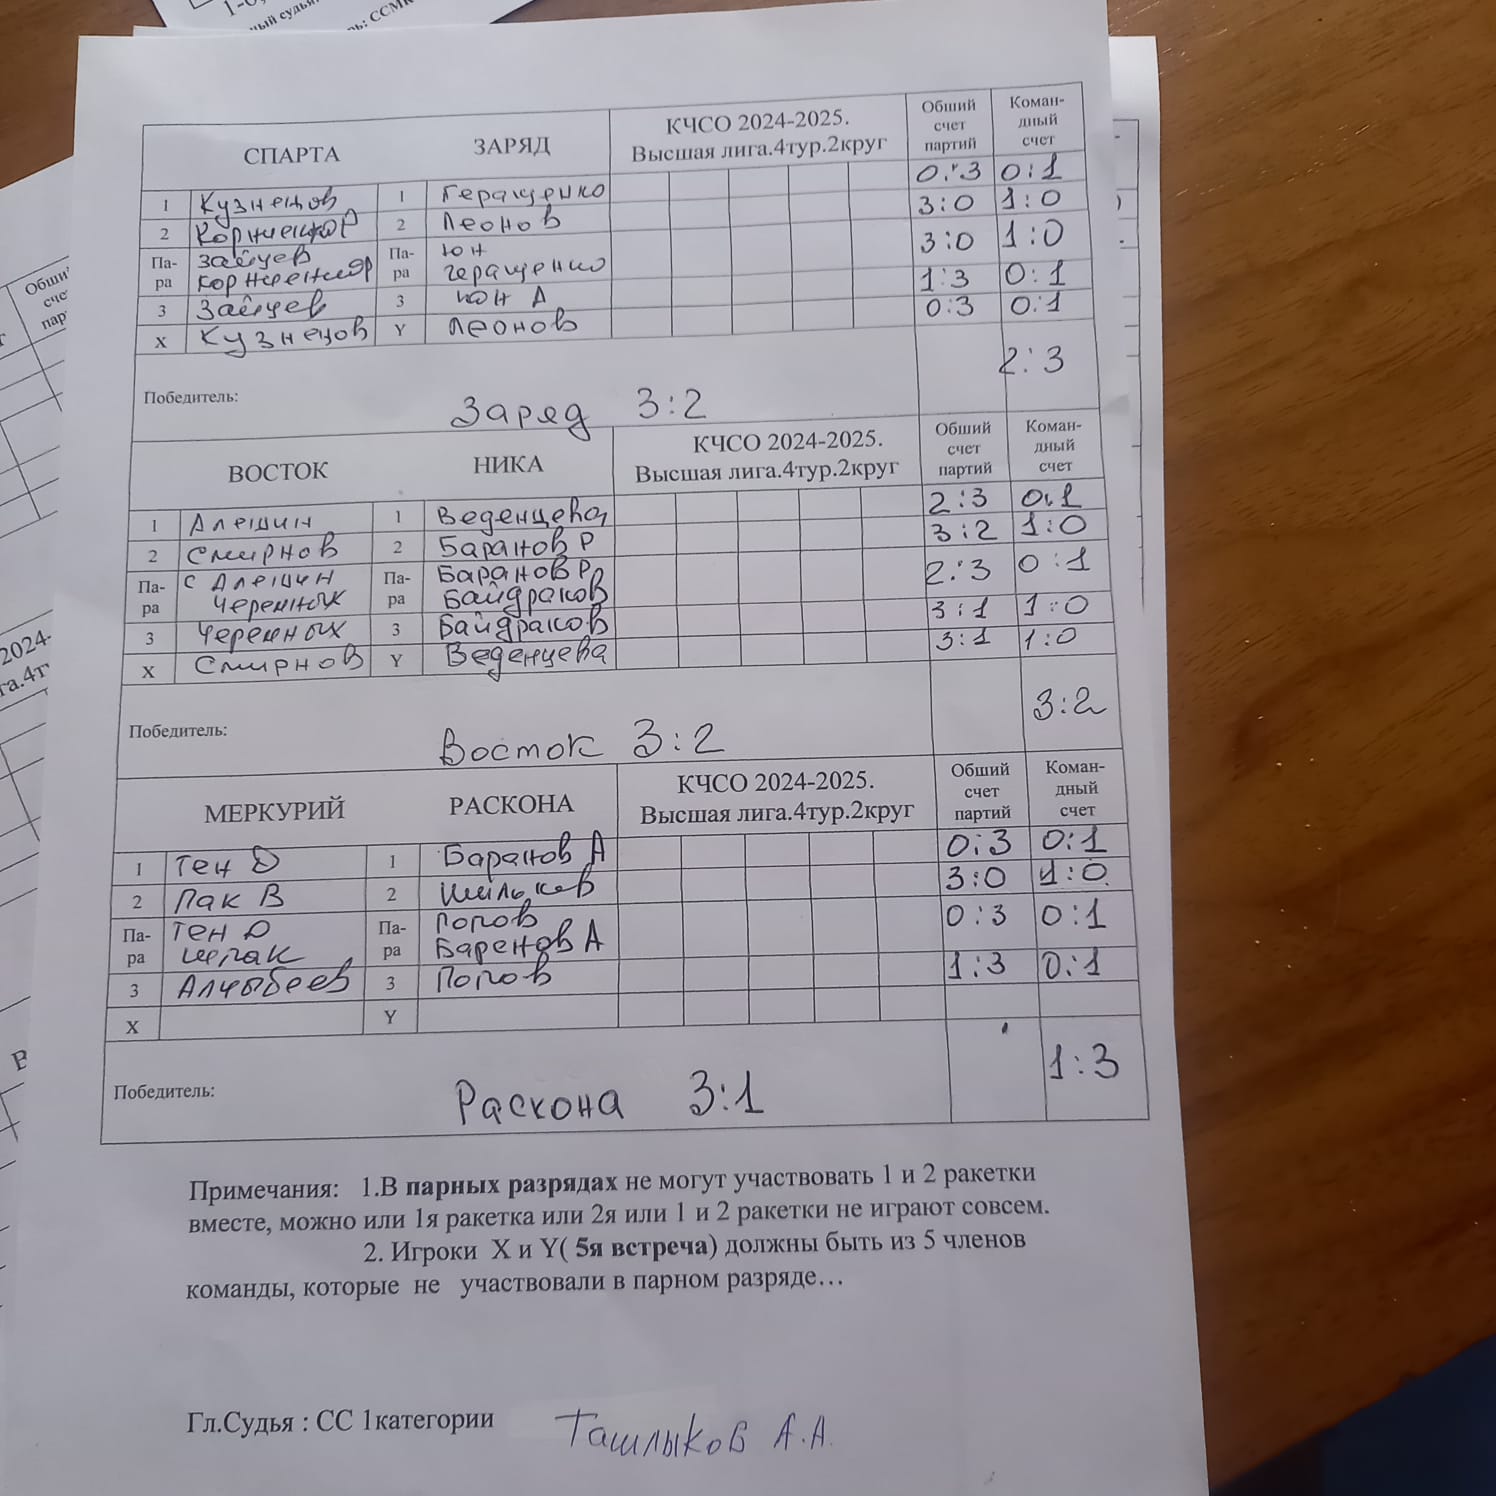 ный судья:
ь: ССМК
СПАРТА ЗАРЯД КЧСО 2024-2025. Высшая лига.4тур.2круг Общий счет партий Коман-дный счет
1 Кузнецов 1 Геращенко 0:3 0:1
2 2 Леонов 3:0 1:0
Па-ра Зайцев Па-ра Юн 3:0 1:0
Геращенко
3 Зайцев 3 Юн А 1:3 0:1
X Кузнецов Y Леонов 0:3 0:1
2:3
Победитель: Заряд 3:2
ВОСТОК НИКА КЧСО 2024-2025. Высшая лига.4тур.2круг Общий счет партий Коман-дный счет
1 Алешин 1 Веденцева 2:3 0:1
2 Смирнов 2 Баранов Р 3:2 1:0
Па-ра С Алешин Па-ра Баранов Р 2:3 0:1
Черемных Байдраков
3 Черемных 3 Байдраков 3:1 1:0
X Смирнов Y Веденцева 3:1 1:0
3:2
Победитель: Восток 3:2
МЕРКУРИЙ РАСКОНА КЧСО 2024-2025. Высшая лига.4тур.2круг Общий счет партий Коман-дный счет
1 Тен D 1 Баранов А 0:3 0:1
2 Пак В 2 3:0 1:0
Па-ра Тен D Па-ра Попов 0:3 0:1
Баренов А
3 Алчыбеев 3 Попов 1:3 0:1
X Y
1:3
Победитель: Раскона 3:1
Примечания: 1.В парных разрядах не могут участвовать 1 и 2 ракетки
вместе, можно или 1я ракетка или 2я или 1 и 2 ракетки не играют совсем.
2. Игроки X и Y( 5я встреча) должны быть из 5 членов
команды, которые не участвовали в парном разряде…
Гл.Судья : СС 1категории Ташлыков А.А.